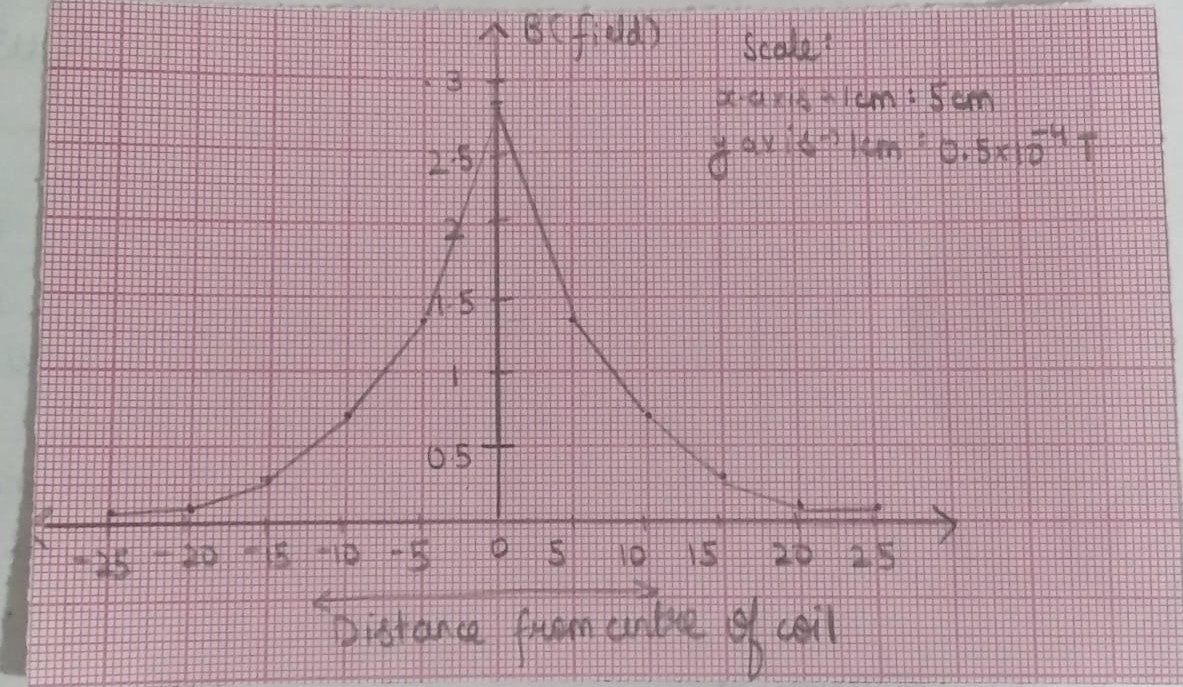 B(field)
Scale:
x-axis → 1cm : 5cm
y axis → 1cm : 0.5x10⁻⁴ T
3
2.5
2
1.5
1
0.5
-25 -20 -15 -10 -5 0 5 10 15 20 25
Distance from centre of coil